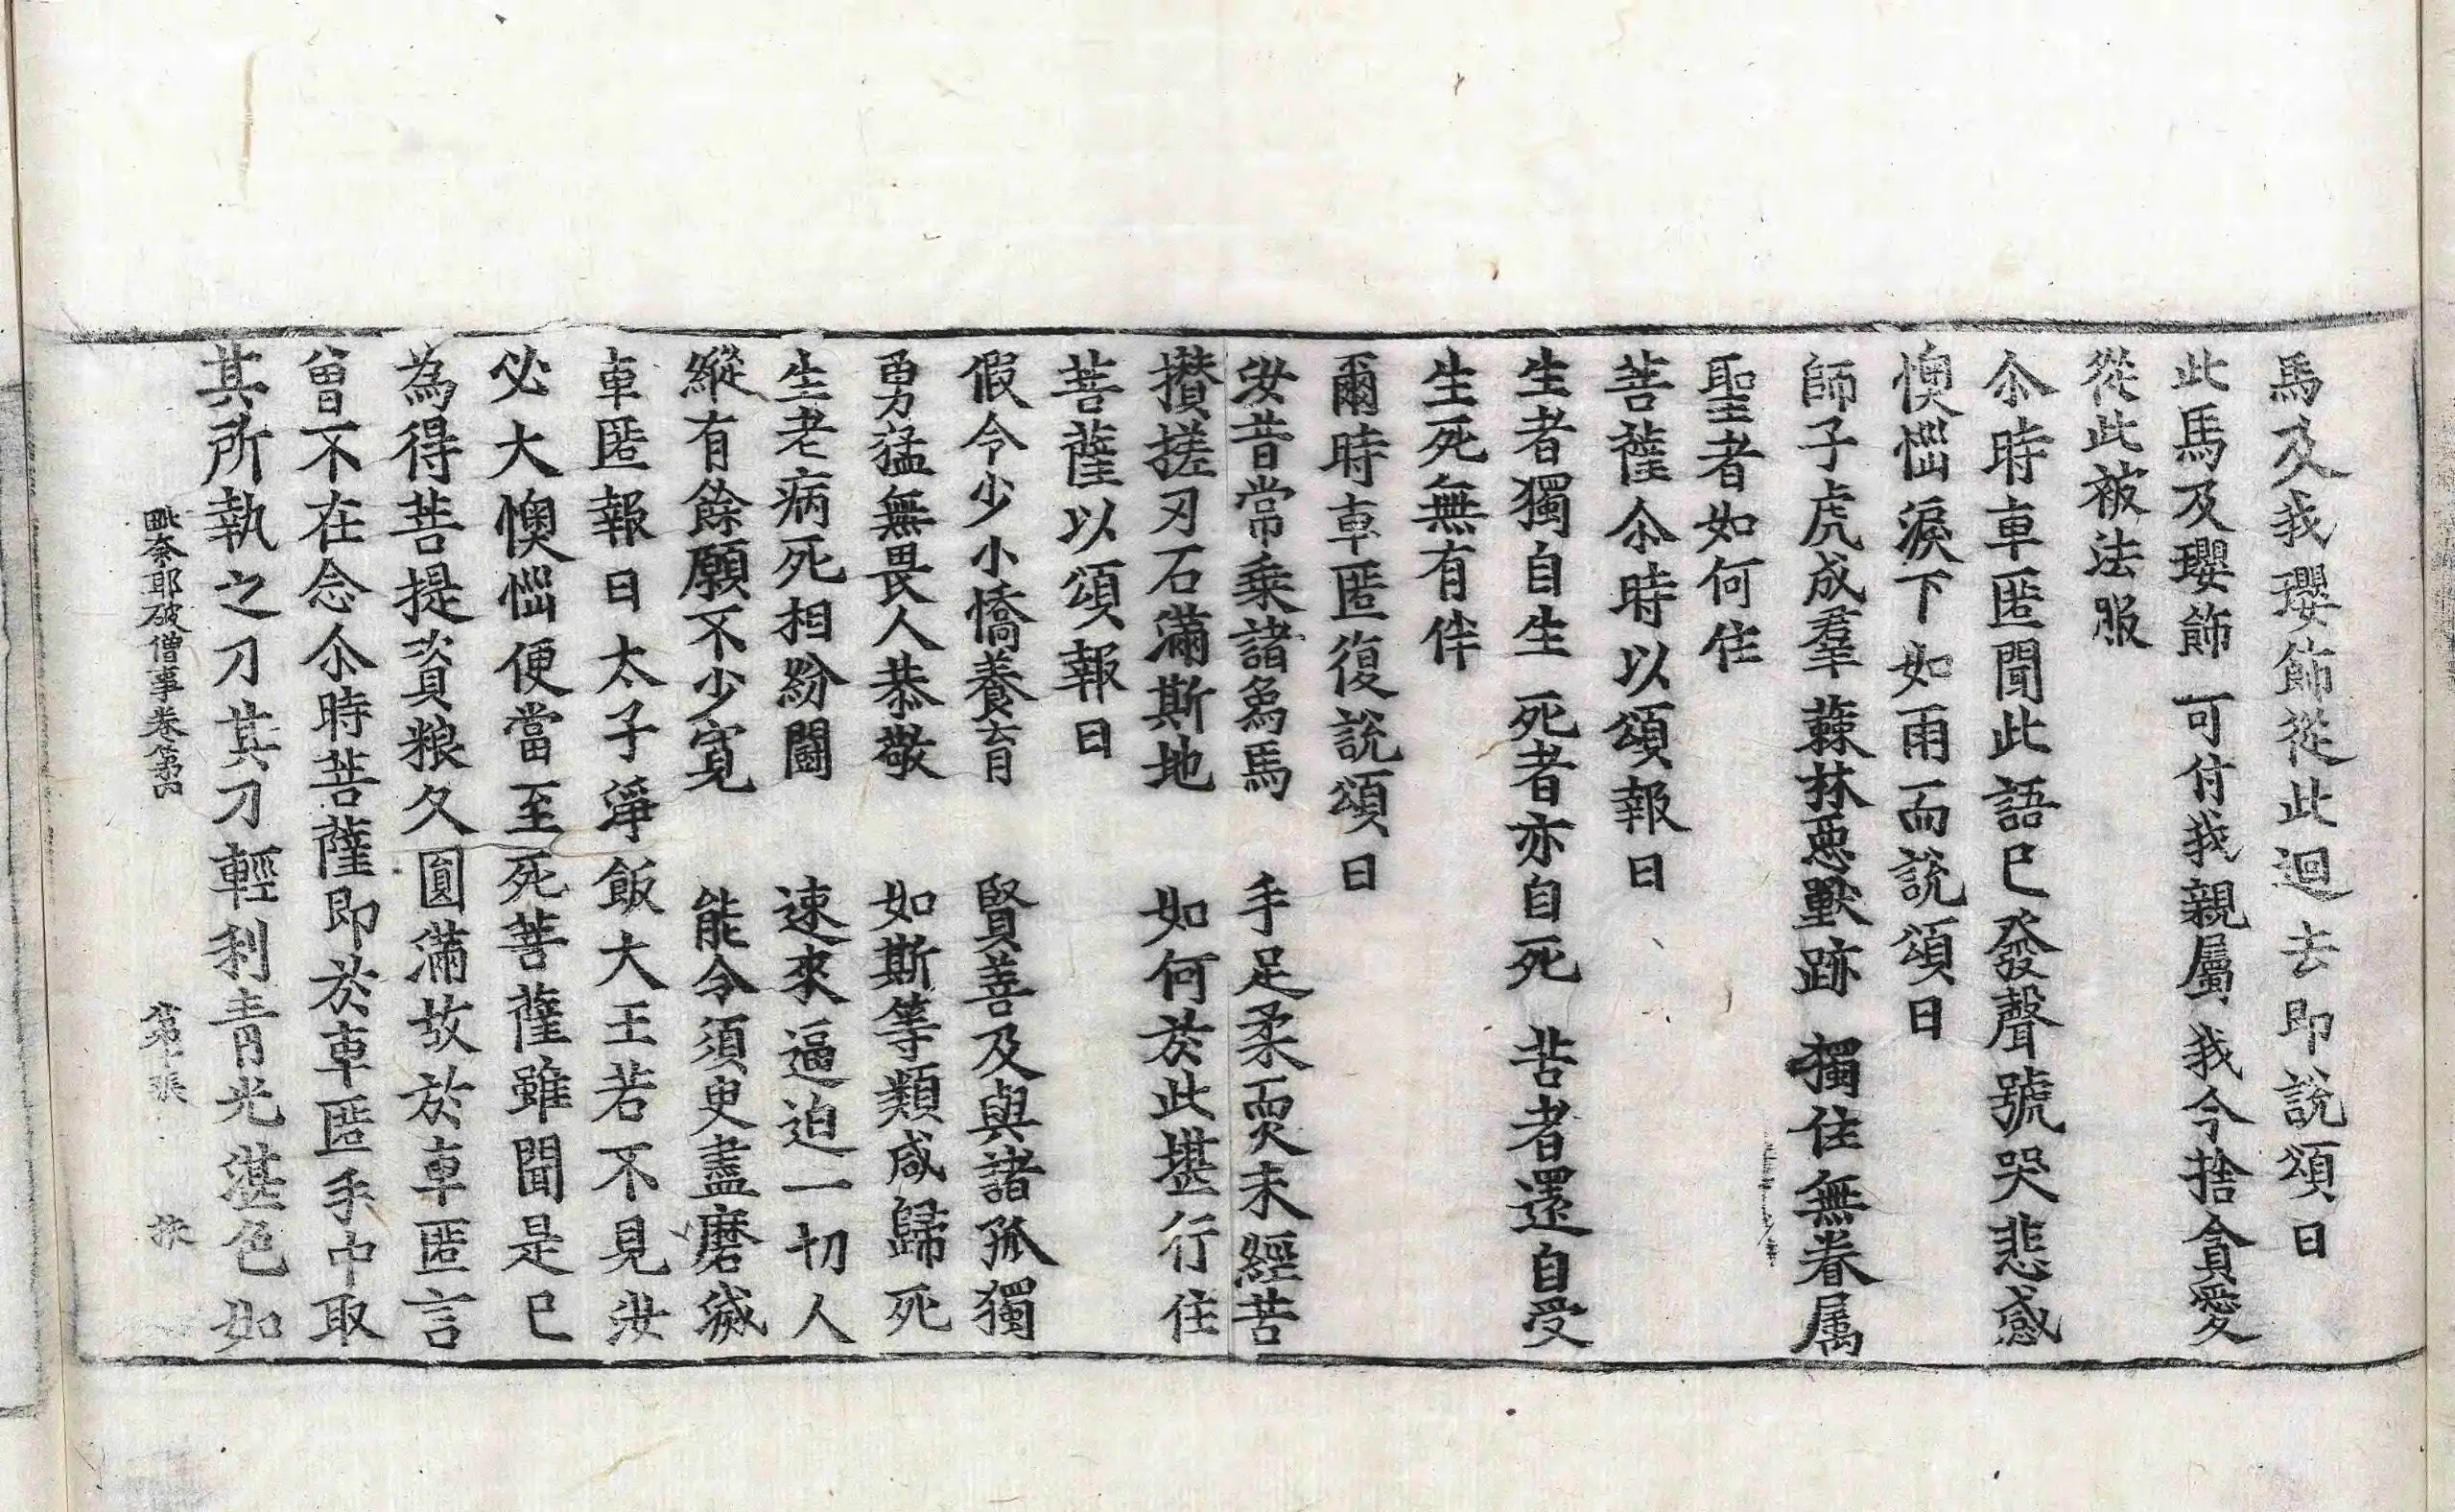 馬及我瓔飾從此迴去即說頌曰
此馬及瓔飾 可付我親屬 我今捨貪愛
從此被法服
尒時車匿聞此語已發聲號哭悲感
懊惱淚下如雨而說頌曰
師子虎成羣 蕀林惡獸跡 獨住無眷属
聖者如何住
菩薩尒時以頌報曰
生者獨自生 死者亦自死 苦者還自受
生死無有伴
爾時車匿復說頌曰
汝昔常乗諸象馬 手足柔耎未經苦
攅搓刃石滿斯地 如何於此堪行住
菩薩以頌報曰
假令少小憍養育 賢善及與諸孤獨
勇猛無畏人恭敬 如斯等類咸歸死
生老病死相紛鬪 速來逼迫一切人
縱有餘願不少寬 能令須臾盡磨滅
車匿報曰太子淨飯大王若不見汝
必大懊惱便當至死菩薩雖聞是已
為得菩提資粮久圓滿故於車匿言
曾不在念尒時菩薩即於車匿手中取
其所執之刀其刀輕利青光湛色如
毗奈耶破僧事卷第四 第十張